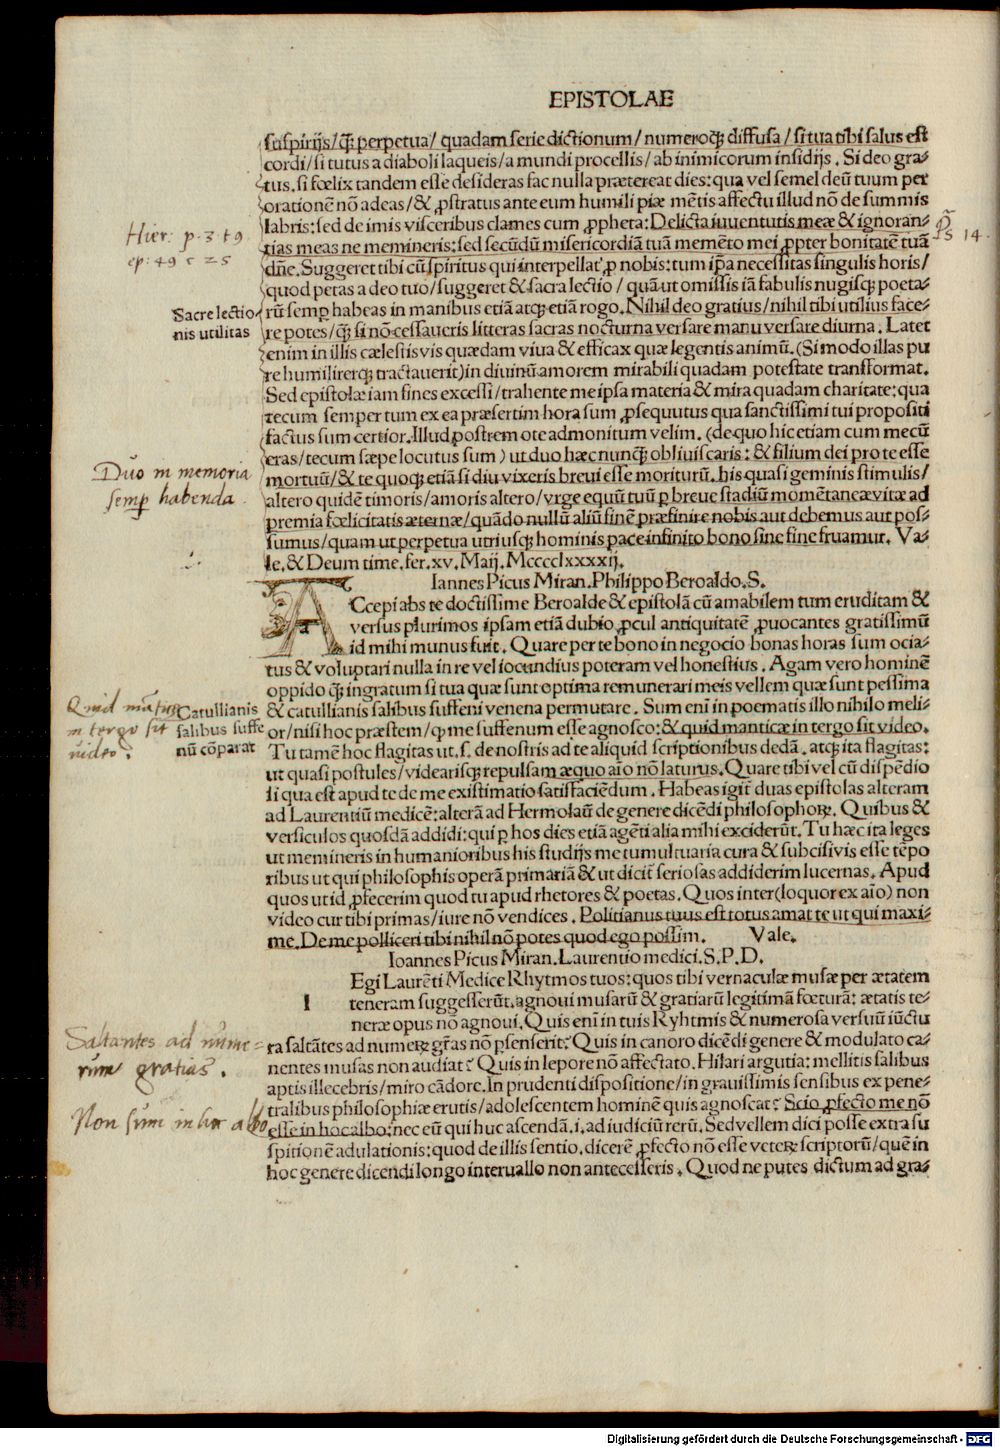 EPISTOLAE
suspirijs/q̄ꝫ perpetua/ quadam serie dictionum/ numeroqꝫ diffusa/ si tua tibi salus est
cordi/si tutus a diaboli laqueis/a mundi procellis/ab inimicorum insidijs. Si deo gra⸗
tus, si fœlix tandem esse desideras fac nulla prætereat dies: qua vel semel deū tuum per
orationē nō adeas/& ꝓstratus ante eum humili piæ mētis affectu illud nō de summis
labris: sed de imis visceribus clames cum ꝓpheta: Delicta iuuentutis meæ & ignoran⸗
tias meas ne memineris: sed secūdū misericordiā tuā memēto mei ꝓpter bonitatē tuā
dñe. Suggeret tibi cū spiritus qui interpellat ꝓ nobis: tum ip̄a necessitas singulis horis/
quod petas a deo tuo/suggeret & sacra lectio/ quā ut omissis iā fabulis nugisqꝫ poeta⸗
rū semp̱ habeas in manibus etiā atqꝫ etiā rogo. Nihil deo gratius/nihil tibi utilius face⸗
re potes/q̄ꝫ si nō cessaueris litteras sacras nocturna versare manu versare diurna. Latet
enim in illis cælestis vis quædam viua & efficax quæ legentis animū. (Si modo illas pu
re humilirerqꝫ tractauerit) in diuinū amorem mirabili quadam potestate transformat.
Sed epistolæ iam fines excessi/trahente me ipsa materia & mira quadam charitate: qua
tecum semper tum ex ea præsertim hora sum ꝓsequutus qua sanctissimi tui propositi
factus sum certior. Illud postrem ote admonitum velim. (de quo hic etiam cum mecū
eras/tecum sæpe locutus sum) ut duo hæc nunqꝫ̄ obliuiscaris: & filium dei pro te esse
mortuū/& te quoqꝫ etiā si diu vixeris breui esse moriturū. his quasi geminis stimulis/
altero quidē timoris/amoris altero/vrge equū tuū p̱ breue stadiū momētaneæ vitæ ad
premia fœlicitatis æternæ/quādo nullū aliū finē præfinire nobis aut debemus aut pos⸗
sumus/quam ut perpetua utriusqꝫ hominis pace infinito bono sine fine fruamur. Va⸗
le. & Deum time. fer. xv. Maij. Mccccлxxxxij.
Iannes Picus Miran. Philippo Beroaldo. S.
ACcepi abs te doctissime Beroalde & epistolā cū amabilem tum eruditam &
versus plurimos ipsam etiā dubio ꝓcul antiquitatē ꝓuocantes gratissimū
id mihi munus fuit. Quare per te bono in negocio bonas horas sum ocia⸗
tus & voluptari nulla in re vel iocundius poteram vel honestius. Agam vero hominē
oppido q̄ꝫ ingratum si tua quæ sunt optima remunerari meis vellem quæ sunt pessima
& catullianis salibus suffeni venena permutare. Sum enī in poematis illo nihilo meli⸗
or/nisi hoc præstem/ꝙ me suffenum esse agnosco: & quid manticæ in tergo sit video.
Tu tamē hoc flagitas ut. s. de nostris ad te aliquid scriptionibus dedā. atqꝫ ita flagitas:
ut quasi postules/videarisqꝫ repulsam æquo aīo nō laturus. Quare tibi vel cū dispēdio
si qua est apud te de me existimatio satisfaciēdum. Habeas igit̄ duas epistolas alteram
ad Laurentiū medicē: alterā ad Hermolaū de genere dicēdi philosophoꝝ. Quibus &
versiculos quosdā addidi: qui p̱ hos dies etiā agēti alia mihi exciderūt. Tu hæc ita leges
ut memineris in humanioribus his studijs me tumultuaria cura & subcisivis esse tēpo
ribus ut qui philosophis operā primariā & ut dicit̄ seriosas addiderim lucernas. Apud
quos ut id ꝓfecerim quod tu apud rhetores & poetas. Quos inter (loquor ex aīo) non
video cur tibi primas/iure nō vendices. Politianus tuus est totus amat te ut qui maxi⸗
me. De me polliceri tibi nihil nō potes quod ego possim. Vale.
Ioannes Picus Miran. Laurentio medici. S. P. D.
lEgi Laurēti Medice Rhytmos tuos: quos tibi vernaculæ musæ per ætatem
teneram suggesserūt. agnoui musarū & gratiarū legitimā fœturā: ætatis te⸗
neræ opus nō agnoui. Quis enī in tuis Ryhtmis & numerosa versuū iūctu
ra saltātes ad numeꝝ grās nō p̱senserit? Quis in canoro dicēdi genere & modulato ca⸗
nentes musas non audiat? Quis in lepore nō affectato. Hilari argutia: mellitis salibus
aptis illecebris/miro cādore. In prudenti dispositione/in grauissimis sensibus ex pene⸗
tralibus philosophiæ erutis/adolescentem hominē quis agnoscat? Scio ꝓfecto me nō
esse in hoc albo: nec eū qui huc ascendā. i. ad iudiciū rerū. Sed vellem dici posse extra su
spitionē adulationis: quod de illis sentio. dicerē ꝓfecto nō esse veteꝝ scriptorū/quē in
hoc genere dicendi longo interuallo non antecesseris. Quod ne putes dictum ad gra⸗
Hier: p. 3. t 9
ep: 49 c 25
ps 14.
Sacre lectio
nis utilitas
Duo in memoria
semp̱ habenda
Quid mātice
in tergo sit
video.
Catullianis
salibus suffe
nū cōparat
Saltantes ad nume⸗
rum gratias.
Non sum in hoc albo
Digitalisierung gefördert durch die Deutsche Forschungsgemeinschaft - DFG